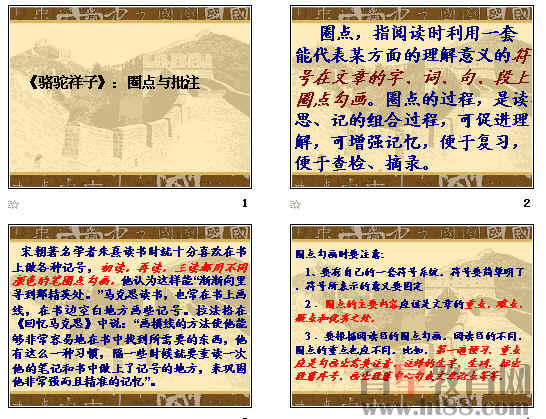 《骆驼祥子》：圈点与批注
1
圈点，指阅读时利用一套
能代表某方面的理解意义的符
号在文章的字、词、句、段上
圈点勾画。圈点的过程，是读
思、记的组合过程，可促进理
解，可增强记忆，便于复习，
便于查检、摘录。
2
宋朝著名学者朱熹读书时就十分喜欢在书
上做各种记号，初读、再读、三读都用不同
颜色的笔圈点勾画。他认为这样能“渐渐向里
寻到那精英处。”马克思读书，也常在书上画
线，在书边空白地方画些记号。拉法格在
《回忆马克思》中说：“画横线的方法使他能
够非常容易地在书中找到所需要的东西，他
有这么一种习惯，隔一些时候就要重读一次
他的笔记和书中做上了记号的地方，来巩固
他非常强而且精准的记忆”。
圈点勾画时要注意：
1、要有自己的一套符号系统。符号要简单明了
，符号所表示的意义要固定
2．圈点的主要内容应该是文章的重点、难点、
疑点和优美之处。
3．要根据阅读目的圈点勾画。阅读目的不同，
圈点的重点也应不同。比如，第一遍预习，重点